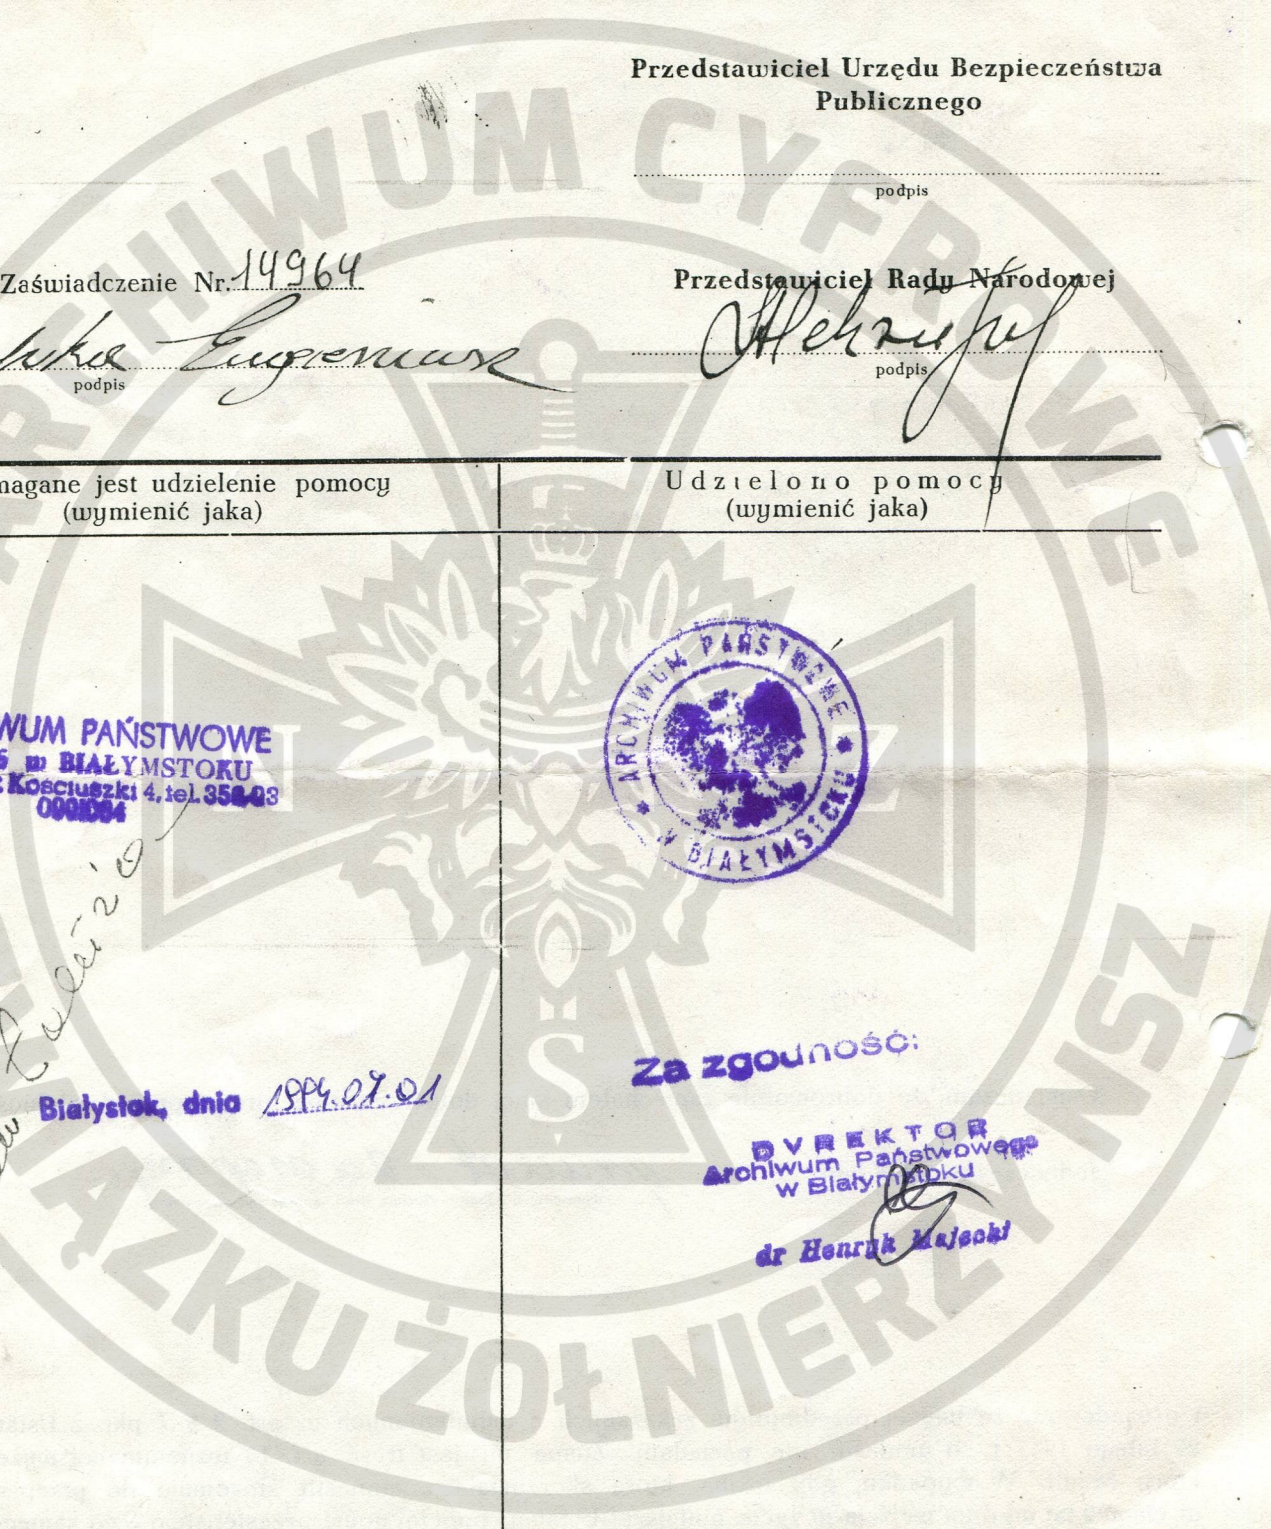 Przedstawiciel Urzędu Bezpieczeństwa
Publicznego
podpis
Zaświadczenie Nr. 14964
Eugeniusz
podpis
Przedstawiciel Rady Narodowej
podpis
magane jest udzielenie pomocy
(wymienić jaka)
Udzielono pomocy
(wymienić jaka)
WUM PAŃSTWOWE
w BIAŁYMSTOKU
Kościuszki 4, tel.
ARCHIWUM PAŃSTWOWE
W BIAŁYMSTOKU
Białystok, dnia 1994.07.01
Za zgodność:
DYREKTOR
Archiwum Państwowego
w Białymstoku
dr Henryk Majecki
ARCHIWUM CYFROWE
ZWIĄZKU ŻOŁNIERZY NSZ
N Z
S